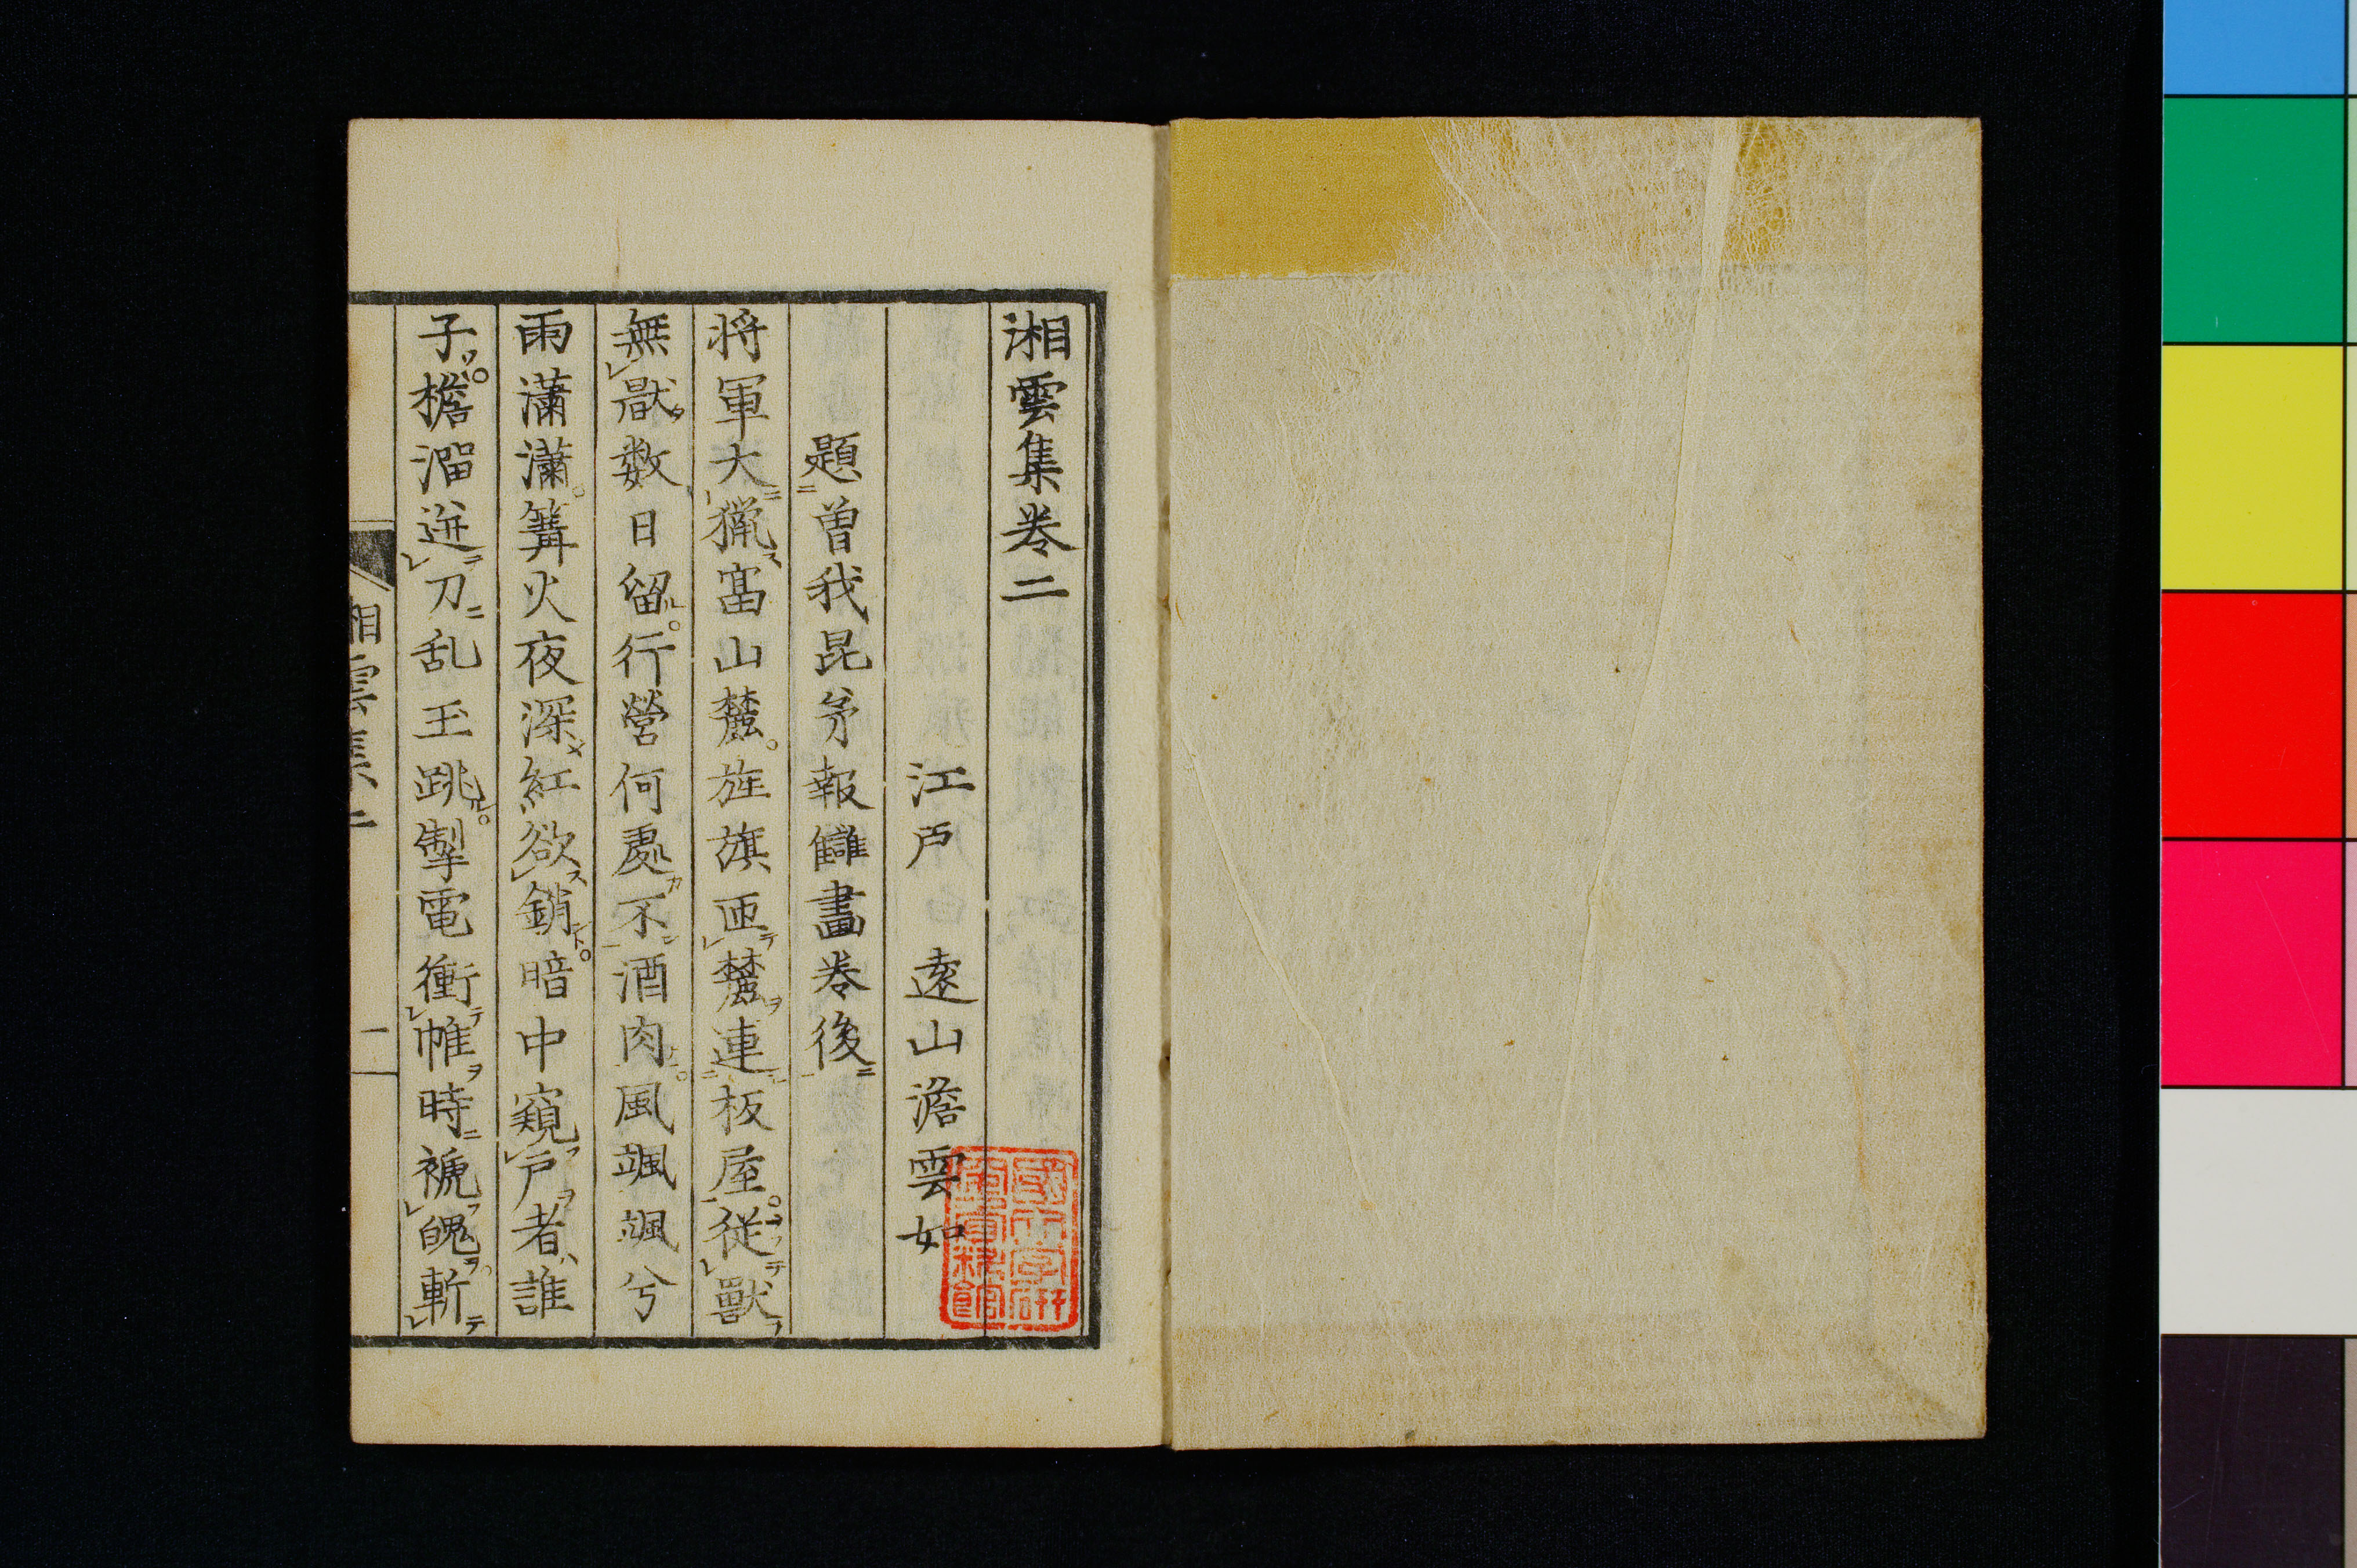 湘雲集巻二
江戸　遠山澹雲如
題曽我昆弟報讎畫巻後
将軍大猟冨山麓旌旗匝麓連板屋従獣
無厭数日留行營何處不酒肉風颯颯兮
雨瀟瀟篝火夜深紅欲銷暗中窺戸者誰
子檐溜迸刀乱玉跳掣電衝帷時褫魄斬
湘雲集二
一
國文学研究資料館